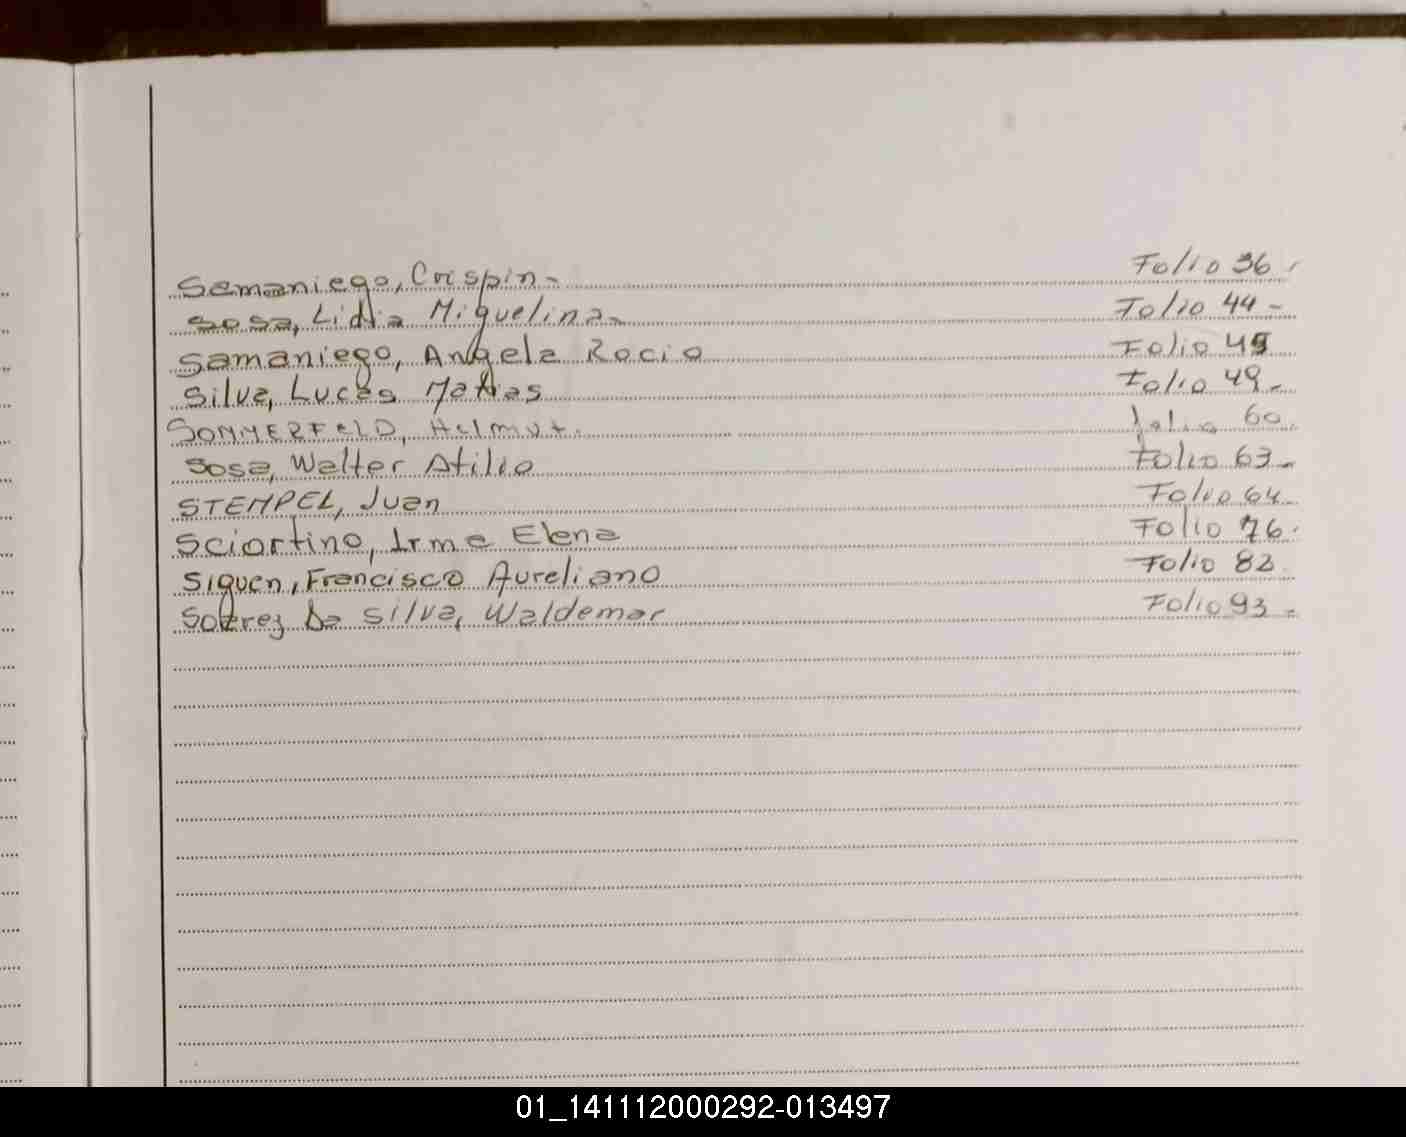 Samaniego, Crispin - Folio 36 -
Sosa, Lidia Miguelina - Folio 44 -
Samaniego, Angela Rocio Folio 45
Silva, Lucas Matias Folio 49 -
SOMMERFELD, Helmut. folio 60.
Sosa, Walter Atilio Folio 63 -
STEMPEL, Juan Folio 64 -
Sciortino, Irma Elena Folio 76.
Siguen, Francisco Aureliano Folio 82.
Da Silva, Waldemar Folio 93 -
01_141112000292-013497